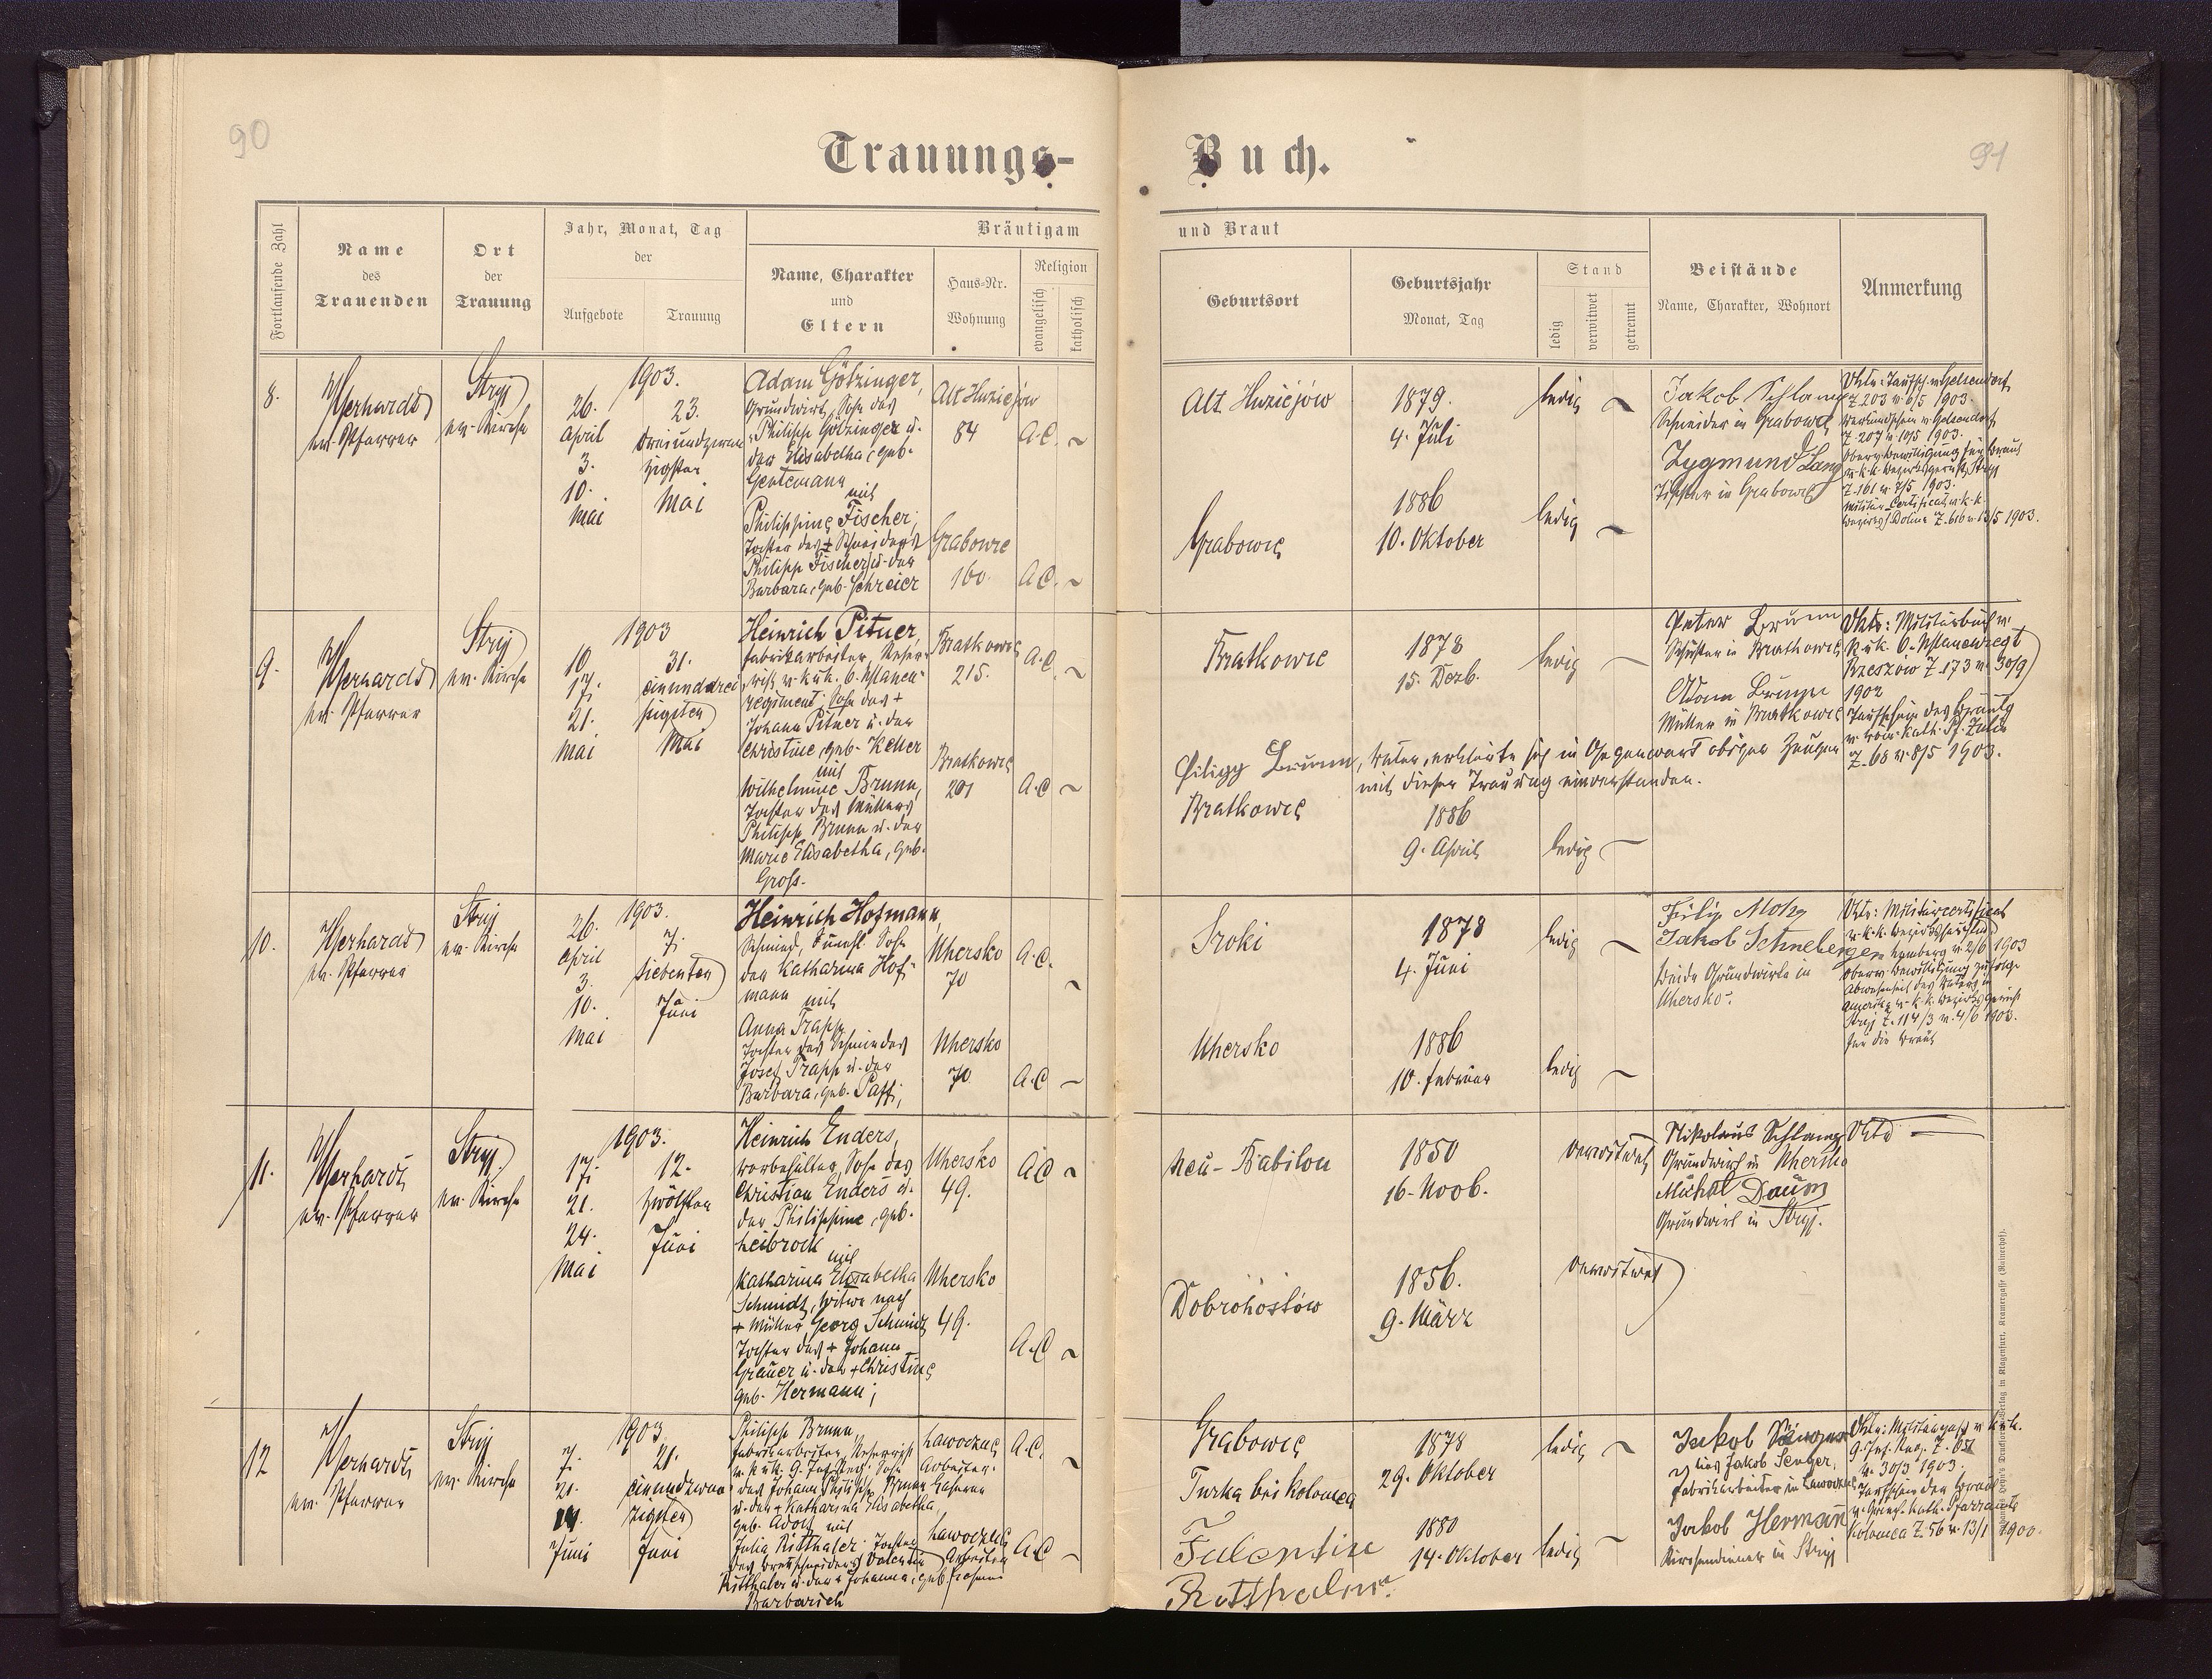 90
Trauungs-
Buch.
91
Fortlaufende Zahl
Name
des
Trauenden
Ort
der
Trauung
Jahr, Monat, Tag
der
Aufgebote
Trauung
Bräutigam
Name, Charakter
und
Eltern
Haus-Nr.
Wohnung
Religion
evangelisch
katholisch
und Braut
Geburtsort
Geburtsjahr
Monat, Tag
Stand
ledig
verwitwet
getrennt
Beistände
Name, Charakter, Wohnort
Anmerkung
8.
ev. Pfarrer
Stryj
ev. Kirche
1903.
26.
April
3.
10.
Mai
23.
dreiundzwan
zigsten
Mai
Adam Götzinger,
Grundwirt, Sohn des
Philipp Götzinger u.
der Elisabetha, geb.
Gentemann
mit
Philippine Fischer,
Tochter des + Schneiders
Philipp Fischer u. der
Barbara, geb. Schreier
Alt Huziejów
84
A.C.
Grabowce
160.
A.C.
Alt Huziejów
1879.
4. Juli
ledig
Grabowce
1886
10. Oktober
ledig
Jakob Schlamp
Schneider in Grabowce
Zygmund Lang
Tischler in Grabowce
Z 203 v. 6/5 1903.
Z. 207 v. 10/5 1903.
Z. 161 v. 7/5 1903.
Z. 616 v. 13/5 1903.
9.
ev. Pfarrer
Stryj
ev. Kirche
1903
10.
17.
21.
Mai
31.
einunddrei
sigsten
Mai
Heinrich Pitner,
Fabrikarbeiter, Reser-
vist v. k. u. k. 6. Uhlanen
regiment, Sohn des +
Johann Pitner u. der
Christine, geb. Keller
mit
Wilhelmine Brunn,
Tochter des Müllers
Philipp Brunn u. der
Marie Elisabetha, geb.
Gross.
Bratkowce
215.
A.C.
Bratkowce
201
A.C
Bratkowce
1878
15. Dezb.
ledig
Filipp Brunn, Vater, erklärte sich in Gegenwart obiger Zeugen
mit dieser Trauung einverstanden.
Bratkowce
1886
9. April
ledig
Peter Brunn
Schuster in Bratkowce
Adam Brunn
Müller in Bratkowce
k. u. k. 6. Uhlanenregt
Rzeszów Z. 173 v. 30/9
1902
Z. 68 v. 8/5 1903.
10.
ev. Pfarrer
Stryj
ev. Kirche
1903.
26.
April
3.
10.
Mai
7.
siebenten
Juni
Heinrich Hofmann,
Schmied, Sohn
der Katharina Hof-
mann mit
Anna Trapp
Tochter des Schmiedes
Josef Trapp u. der
Barbara, geb. Paff;
Uhersko
70
A.C.
Uhersko
70
A.C
Sroki
1878
4. Juni
ledig
Uhersko
1886
10. Februar
ledig
Jakob Schneberger
beide Grundwirte in
Uhersko.
v. 2/6 1903
Stryj Z. 114/3 v. 4/6 1903.
für die Braut
11.
ev. Pfarrer
Stryj
ev. Kirche
1903.
17.
21.
24.
Mai
12.
zwölften
Juni
Heinrich Enders,
Vorbehälter, Sohn des
Christian Enders u.
der Philippine, geb.
Leibrock
mit
Katharina Elisabetha
Schmidt, Witwe nach
+ Müller Georg Schmidt
Tochter des + Johann
Grauer u. der + Christine
geb. Hermann;
Uhersko
49.
A.C
Uhersko
49.
A.C
Neu-Babilon
1850
16. Novb.
verwitwet
Dobrohostów
1856.
9. März
verwitwet
Nikolaus Schlamp
Grundwirt in Uhersko
Michal Daum
Grundwirt in Stryj.
12
ev. Pfarrer
Stryj
ev. Kirche
1903.
7.
21.
Juni
21.
einundzwan
zigsten
Juni
Philipp Brunn
Fabrikarbeiter, Reservist
des Johann Philipp Brunn
u. der + Katharina Elisabetha,
geb. Adolf mit
Julia Ritthaler Tochter
des Brettschneiders Valentin
Ritthaler u. der + Johanna, geb.
Barbarich
Lawoczne
A.C.
Lawoczne
A.C
Grabowce
Turka bei Kolomea
1878
29. Oktober
ledig
1880
14. Oktober
ledig
Falentin
Jakob Senger,
Fabrikarbeiter in Lawoczne
Jakob Hermann
Kirchendiener in Stryj
v. 30/3 1903.
Kolomea Z. 56 v. 13/1 1900.